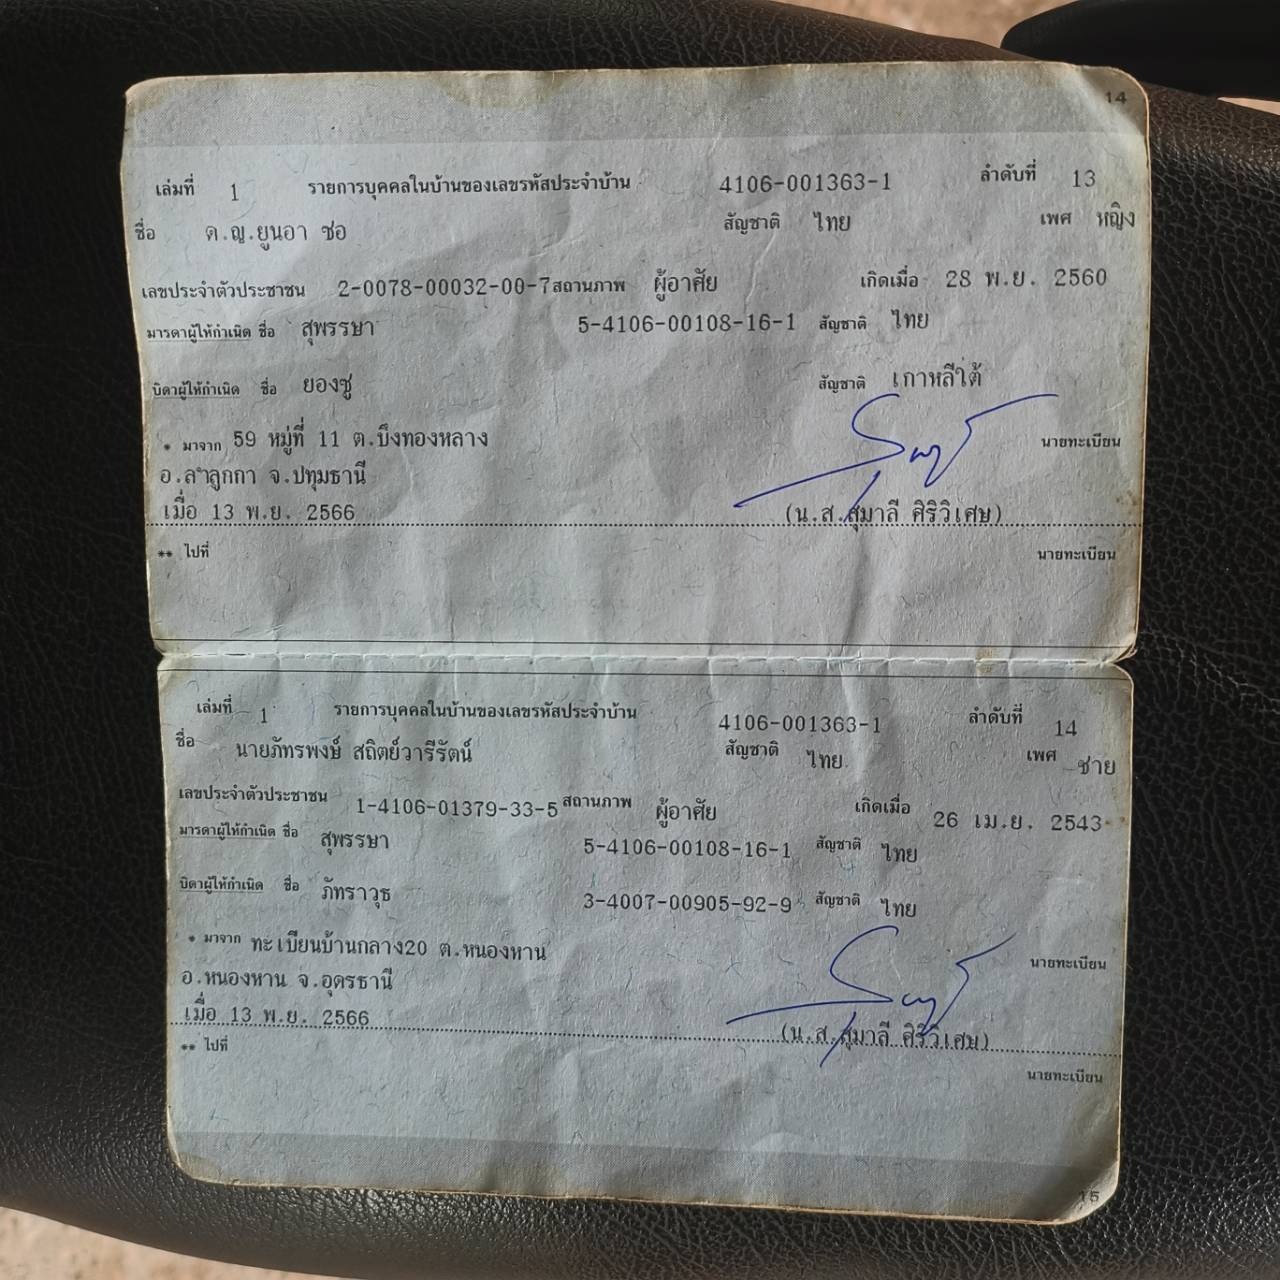 14
เล่มที่ 1 รายการบุคคลในบ้านของเลขรหัสประจำบ้าน 4106-001363-1 ลำดับที่ 13
ชื่อ ด.ญ.ยูนอา ซอ สัญชาติ ไทย เพศ หญิง
เลขประจำตัวประชาชน 2-0078-00032-00-7 สถานภาพ ผู้อาศัย เกิดเมื่อ 28 พ.ย. 2560
มารดาผู้ให้กำเนิด ชื่อ สุพรรษา 5-4106-00108-16-1 สัญชาติ ไทย
บิดาผู้ให้กำเนิด ชื่อ ยองซู สัญชาติ เกาหลีใต้
* มาจาก 59 หมู่ที่ 11 ต.บึงทองหลาง นายทะเบียน
อ.ลำลูกกา จ.ปทุมธานี
เมื่อ 13 พ.ย. 2566 (น.ส.สุมาลี ศิริวิเศษ)
** ไปที่ นายทะเบียน
เล่มที่ 1 รายการบุคคลในบ้านของเลขรหัสประจำบ้าน 4106-001363-1 ลำดับที่ 14
ชื่อ นายภัทรพงษ์ สถิตย์วารีรัตน์ สัญชาติ ไทย เพศ ชาย
เลขประจำตัวประชาชน 1-4106-01379-33-5 สถานภาพ ผู้อาศัย เกิดเมื่อ 26 เม.ย. 2543
มารดาผู้ให้กำเนิด ชื่อ สุพรรษา 5-4106-00108-16-1 สัญชาติ ไทย
บิดาผู้ให้กำเนิด ชื่อ ภัทราวุธ 3-4007-00905-92-9 สัญชาติ ไทย
* มาจาก ทะเบียนบ้านกลาง20 ต.หนองหาน นายทะเบียน
อ.หนองหาน จ.อุดรธานี
เมื่อ 13 พ.ย. 2566 (น.ส.สุมาลี ศิริวิเศษ)
** ไปที่ นายทะเบียน
15